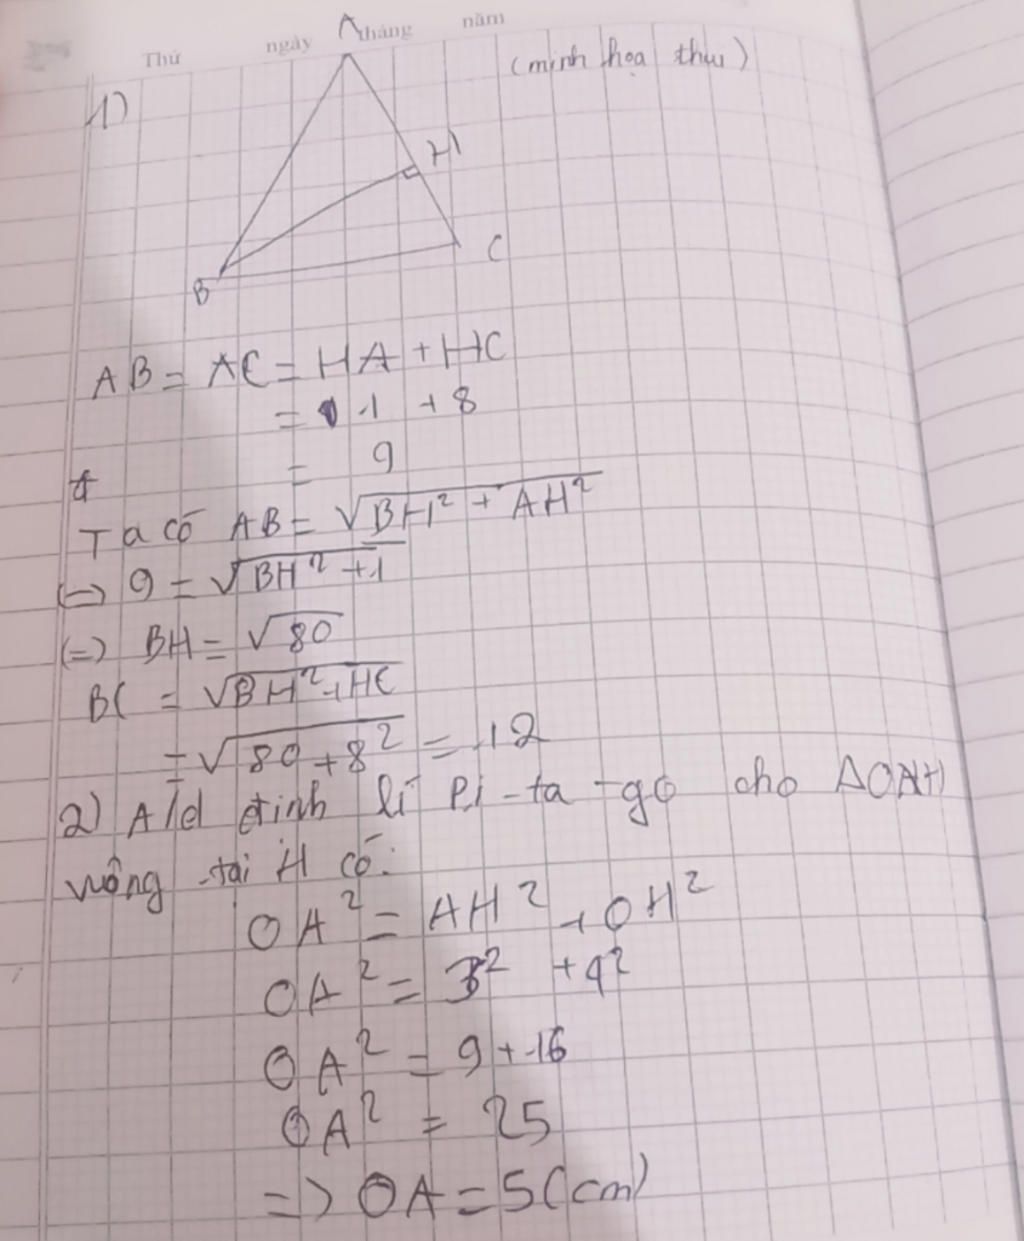 Thứ ngày tháng năm
A
(minh họa thui)
1)
H
C
B
AB = AC = HA + HC
= 1 + 8
= 9
Ta có AB = √BH² + AH²
(=) 9 = √BH² + 1
(=) BH = √80
BC = √BH² + HC
= √80 + 8² = 12
2) A/d định lí Pi-ta-go cho ΔOAH
vuông tại H có:
OA² = AH² + OH²
OA² = 3² + 4²
OA² = 9 + 16
OA² = 25
=> OA = 5 (cm)